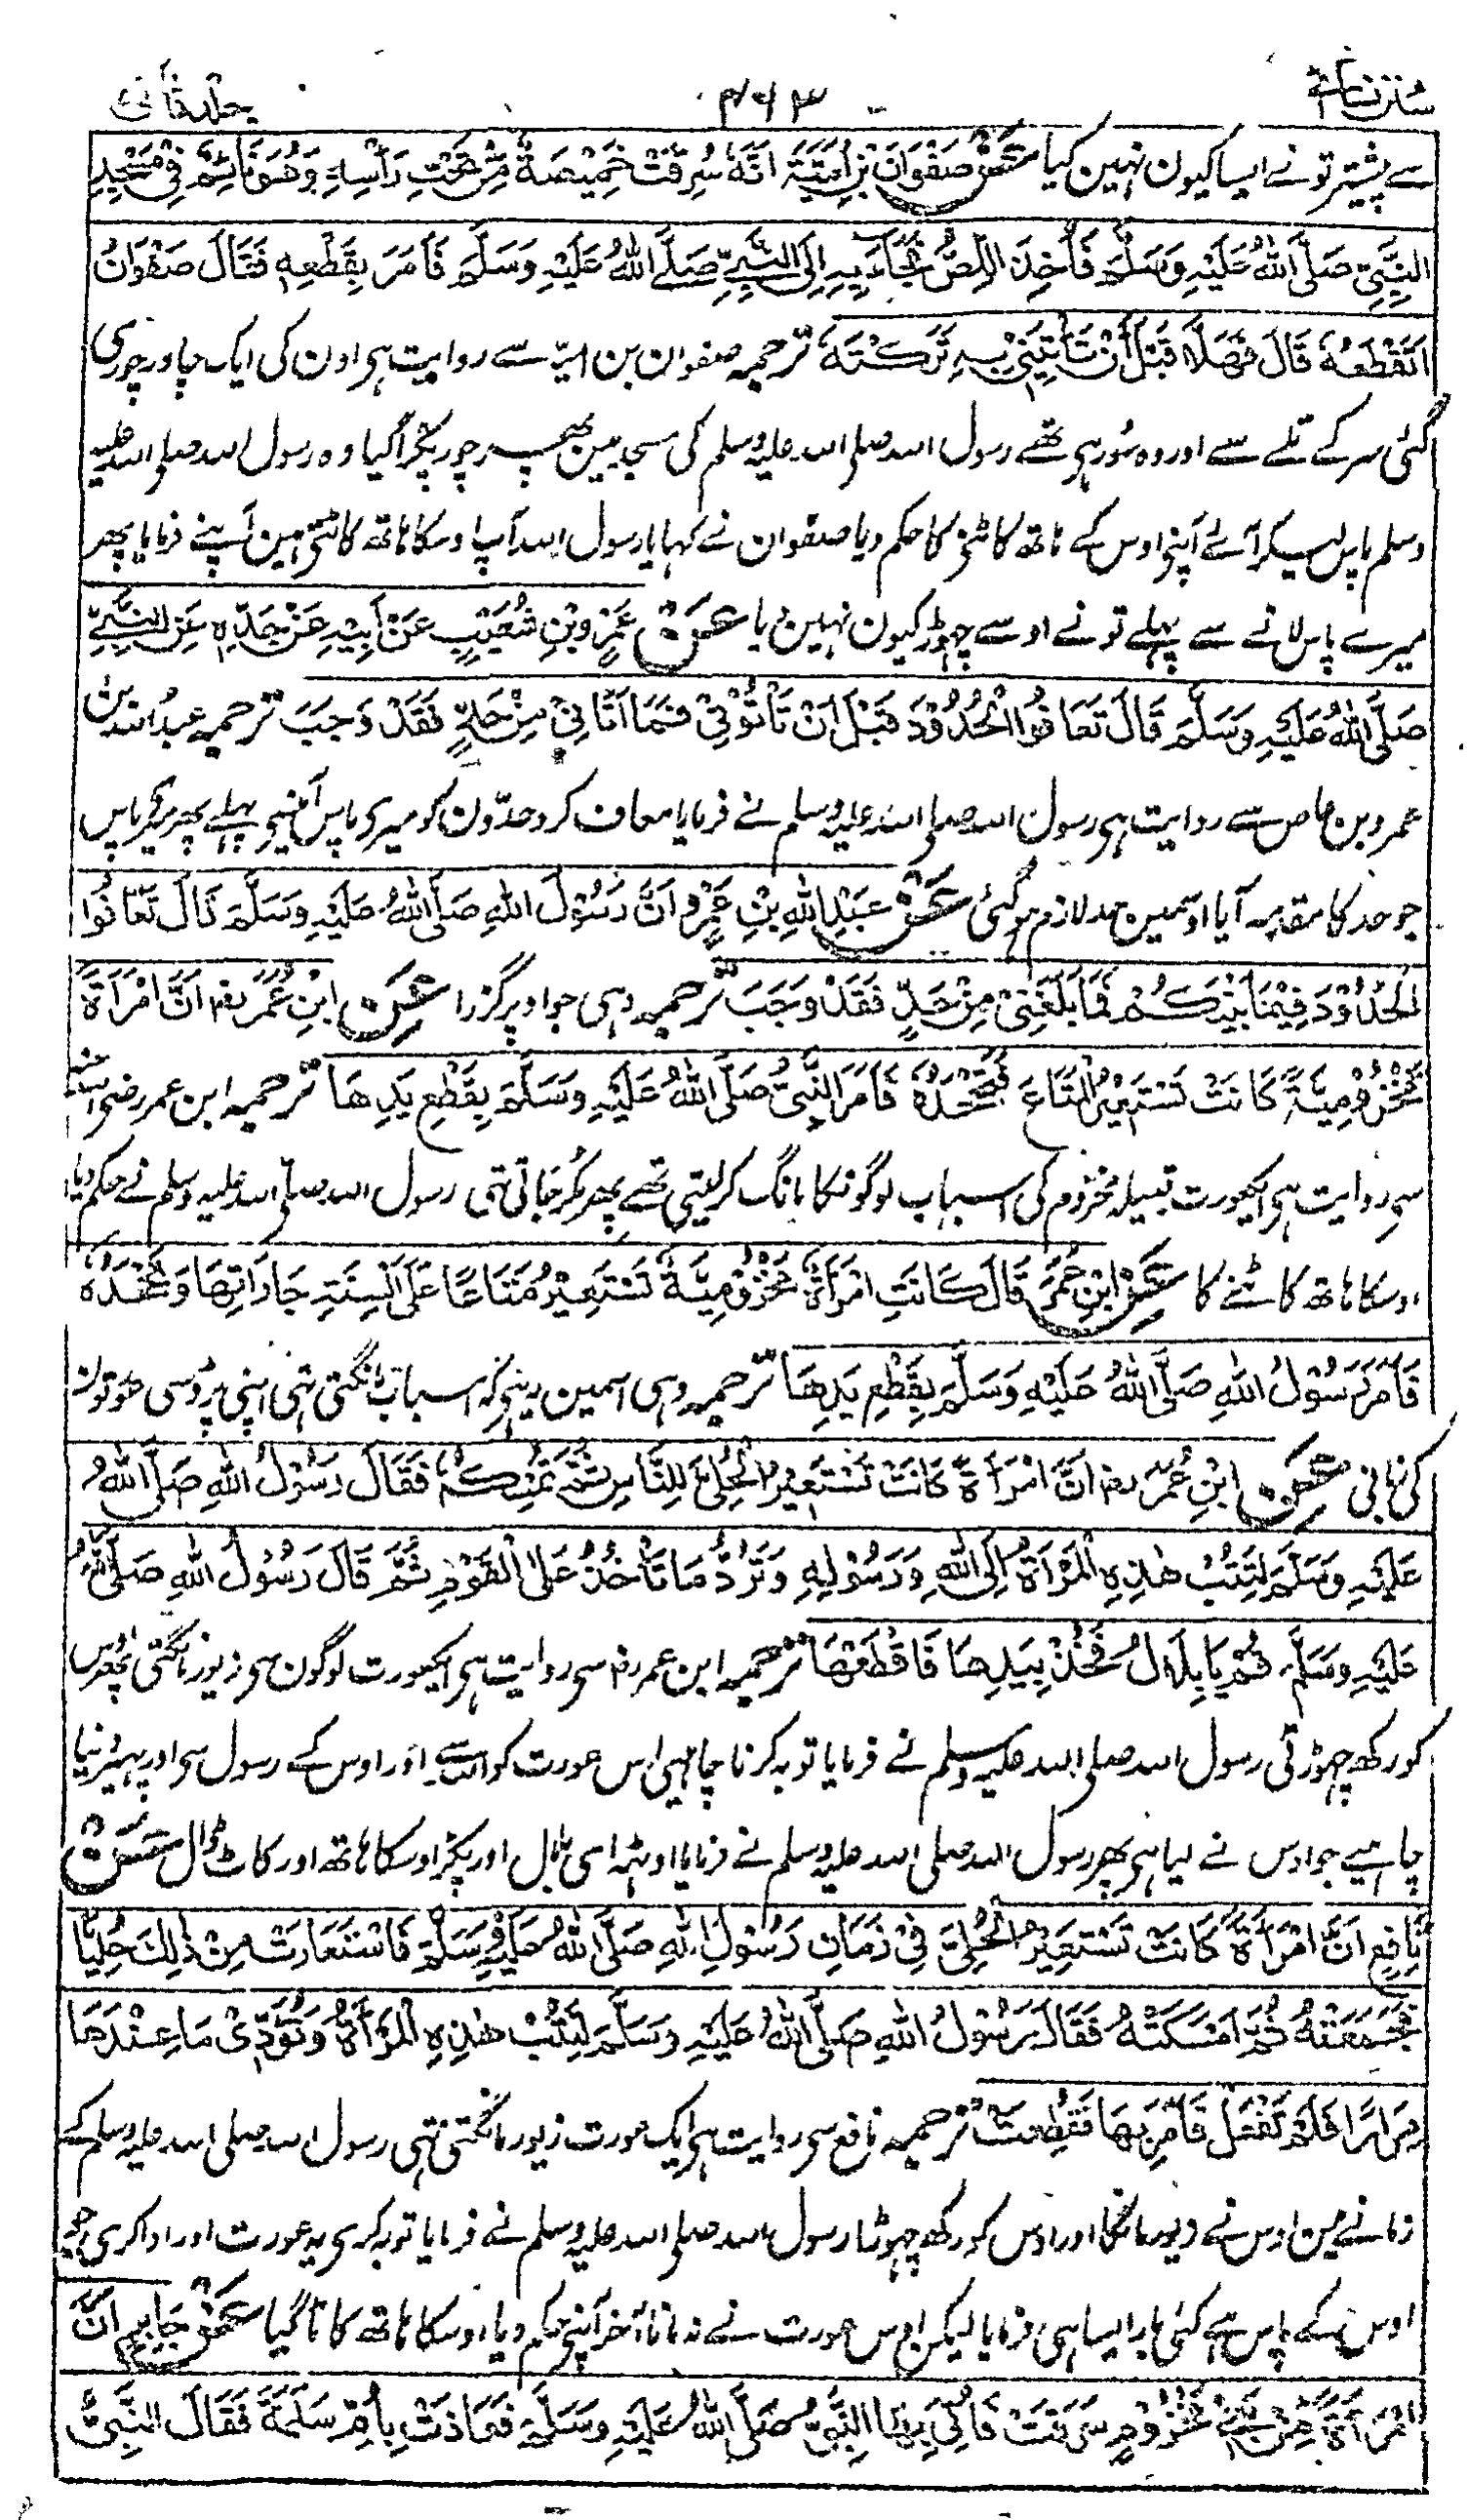 سنن نسائی ۴۶۳ جلد ثانی
سے پیشتر تونے ایسا کیون نہین کیا عَنْ صَفْوَانَ بْنِ اُمَیَّۃَ اَنَّہٗ سُرِقَتْ خَمِیْصَۃٌ مِّنْ تَحْتِ رَاْسِہٖ وَھُوَ نَائِمٌ فِیْ مَسْجِدِ
النَّبِیِّ صَلَّی اللہُ عَلَیْہِ وَسَلَّمَ فَاُخِذَ اللِّصُّ فَجَاءَ بِہٖ اِلَی النَّبِیِّ صَلَّی اللہُ عَلَیْہِ وَسَلَّمَ فَاَمَرَ بِقَطْعِہٖ فَقَالَ صَفْوَانُ
اَتَقْطَعُہٗ قَالَ فَھَلَّا قَبْلَ اَنْ تَاْتِیَنِیْ بِہٖ تَرَکْتَہٗ ترجمہ صفوان بن امیہ سے روایت ہی اون کی ایک چادر چوری
گئی سر کے تلے سے اور وہ سورہی تھے رسول اللہ صلی اللہ علیہ وسلم کی مسجد مین پھر چور پکڑا گیا وہ رسول اللہ صلی اللہ علیہ
وسلم پاس لیکر آئے آپنے اوس کے ہاتھ کاٹنی کا حکم دیا صفوان نے کہا یا رسول اللہ آپ اوسکا ہاتھ کاٹتی ہین آپنے فرمایا پھر
میرے پاس لانے سے پہلے تونے اوسے چھوڑ کیون نہین دیا عَنْ عَمْرِو بْنِ شُعَیْبٍ عَنْ اَبِیْہِ عَنْ جَدِّہٖ عَنِ النَّبِیِّ
صَلَّی اللہُ عَلَیْہِ وَسَلَّمَ قَالَ تَعَافُوا الْحُدُوْدَ قَبْلَ اَنْ تَاْتُوْنِیْ فَمَا اَتَانِیْ مِنْ حَدٍّ فَقَدْ وَجَبَ ترجمہ عبداللہ بن
عمرو بن عاص سے روایت ہی رسول اللہ صلی اللہ علیہ وسلم نے فرمایا معاف کرو حدّون کو میری پاس آنیسی پہلے پھر میری پاس
جو حد کا مقدمہ آیا اوسمین حد لازم ہوگئی عَنْ عَبْدِ اللہِ بْنِ عَمْرٍو اَنَّ رَسُوْلَ اللہِ صَلَّی اللہُ عَلَیْہِ وَسَلَّمَ قَالَ تَعَافُوا
الْحُدُوْدَ فِیْمَا بَیْنَکُمْ فَمَا بَلَغَنِیْ مِنْ حَدٍّ فَقَدْ وَجَبَ ترجمہ وہی جو اوپر گزرا عَنِ ابْنِ عُمَرَ رض اَنَّ امْرَاَۃً
مَخْزُوْمِیَّۃً کَانَتْ تَسْتَعِیْرُ الْمَتَاعَ فَتَجْحَدُہٗ فَاَمَرَ النَّبِیُّ صَلَّی اللہُ عَلَیْہِ وَسَلَّمَ بِقَطْعِ یَدِھَا ترجمہ ابن عمر رضی اللہ عنہ
سے روایت ہی ایکعورت قبیلہ مخزوم کی اسباب لوگونکا مانگ کر لیتی تھی پھر مکر جاتی تھی رسول اللہ صلی اللہ علیہ وسلم نے حکم دیا
اوسکا ہاتھ کاٹنے کا عَنِ ابْنِ عُمَرَ قَالَ کَانَتِ امْرَاَۃٌ مَخْزُوْمِیَّۃٌ تَسْتَعِیْرُ مَتَاعًا عَلٰی اَلْسِنَۃِ جَارَاتِھَا وَتَجْحَدُہٗ
فَاَمَرَ رَسُوْلُ اللہِ صَلَّی اللہُ عَلَیْہِ وَسَلَّمَ بِقَطْعِ یَدِھَا ترجمہ وہی اسمین یہ ہی کہ اسباب مانگتی تھی اپنی پڑوسی عورتون
کی زبانی عَنِ ابْنِ عُمَرَ رض اَنَّ امْرَاَۃً کَانَتْ تَسْتَعِیْرُ الْحُلِیَّ لِلنَّاسِ ثُمَّ تُمْسِکُہٗ فَقَالَ رَسُوْلُ اللہِ صَلَّی اللہُ
عَلَیْہِ وَسَلَّمَ لِتَتُبْ ھٰذِہِ الْمَرْاَۃُ اِلَی اللہِ وَرَسُوْلِہٖ وَتَرُدُّ مَا تَاْخُذُ عَلَی الْقَوْمِ ثُمَّ قَالَ رَسُوْلُ اللہِ صَلَّی اللہُ
عَلَیْہِ وَسَلَّمَ قُمْ یَا بِلَالُ فَخُذْ بِیَدِھَا فَاقْطَعْھَا ترجمہ ابن عمر رض سی روایت ہی ایکعورت لوگون سی زیور مانگتی پھر اس
کو رکھ چھوڑتی رسول اللہ صلی اللہ علیہ وسلم نے فرمایا توبہ کرنا چاہیی اس عورت کو اللہ سے اور اوس کے رسول سی اور پھیر دینا
چاہیے جو اوس نے لیا ہی پھر رسول اللہ صلی اللہ علیہ وسلم نے فرمایا اوٹھ ای بلال اور پکڑ اوسکا ہاتھ اور کاٹ ڈال عَنْ
نَافِعٍ اَنَّ امْرَاَۃً کَانَتْ تَسْتَعِیْرُ الْحُلِیَّ فِیْ زَمَانِ رَسُوْلِ اللہِ صَلَّی اللہُ عَلَیْہِ وَسَلَّمَ فَاسْتَعَارَتْ مِنْ ذٰلِکَ حُلِیًّا
فَجَمَعَتْہُ ثُمَّ اَمْسَکَتْہُ فَقَالَ رَسُوْلُ اللہِ صَلَّی اللہُ عَلَیْہِ وَسَلَّمَ لِتَتُبْ ھٰذِہِ الْمَرْاَۃُ وَتُؤَدِّیْ مَا عِنْدَھَا
مِرَارًا فَلَمْ تَفْعَلْ فَاَمَرَ بِھَا فَقُطِعَتْ ترجمہ نافع سی روایت ہی ایک عورت زیور مانگتی تھی رسول اللہ صلی اللہ علیہ وسلم کے
زمانے مین اوس نے زیور مانگا اور اوس کو رکھ چھوڑا رسول اللہ صلی اللہ علیہ وسلم نے فرمایا توبہ کری یہ عورت اور ادا کری جو
اوس کے پاس ہے کئی بار ایسا ہی فرمایا لیکن اوس عورت نے نہ مانا آخر آپنی حکم دیا اوسکا ہاتھ کاٹا گیا عَنْ جَابِرٍ اَنَّ
امْرَاَۃً مِّنْ بَنِیْ مَخْزُوْمٍ سَرَقَتْ فَاُتِیَ بِھَا النَّبِیُّ صَلَّی اللہُ عَلَیْہِ وَسَلَّمَ فَعَاذَتْ بِاُمِّ سَلَمَۃَ فَقَالَ النَّبِیُّ